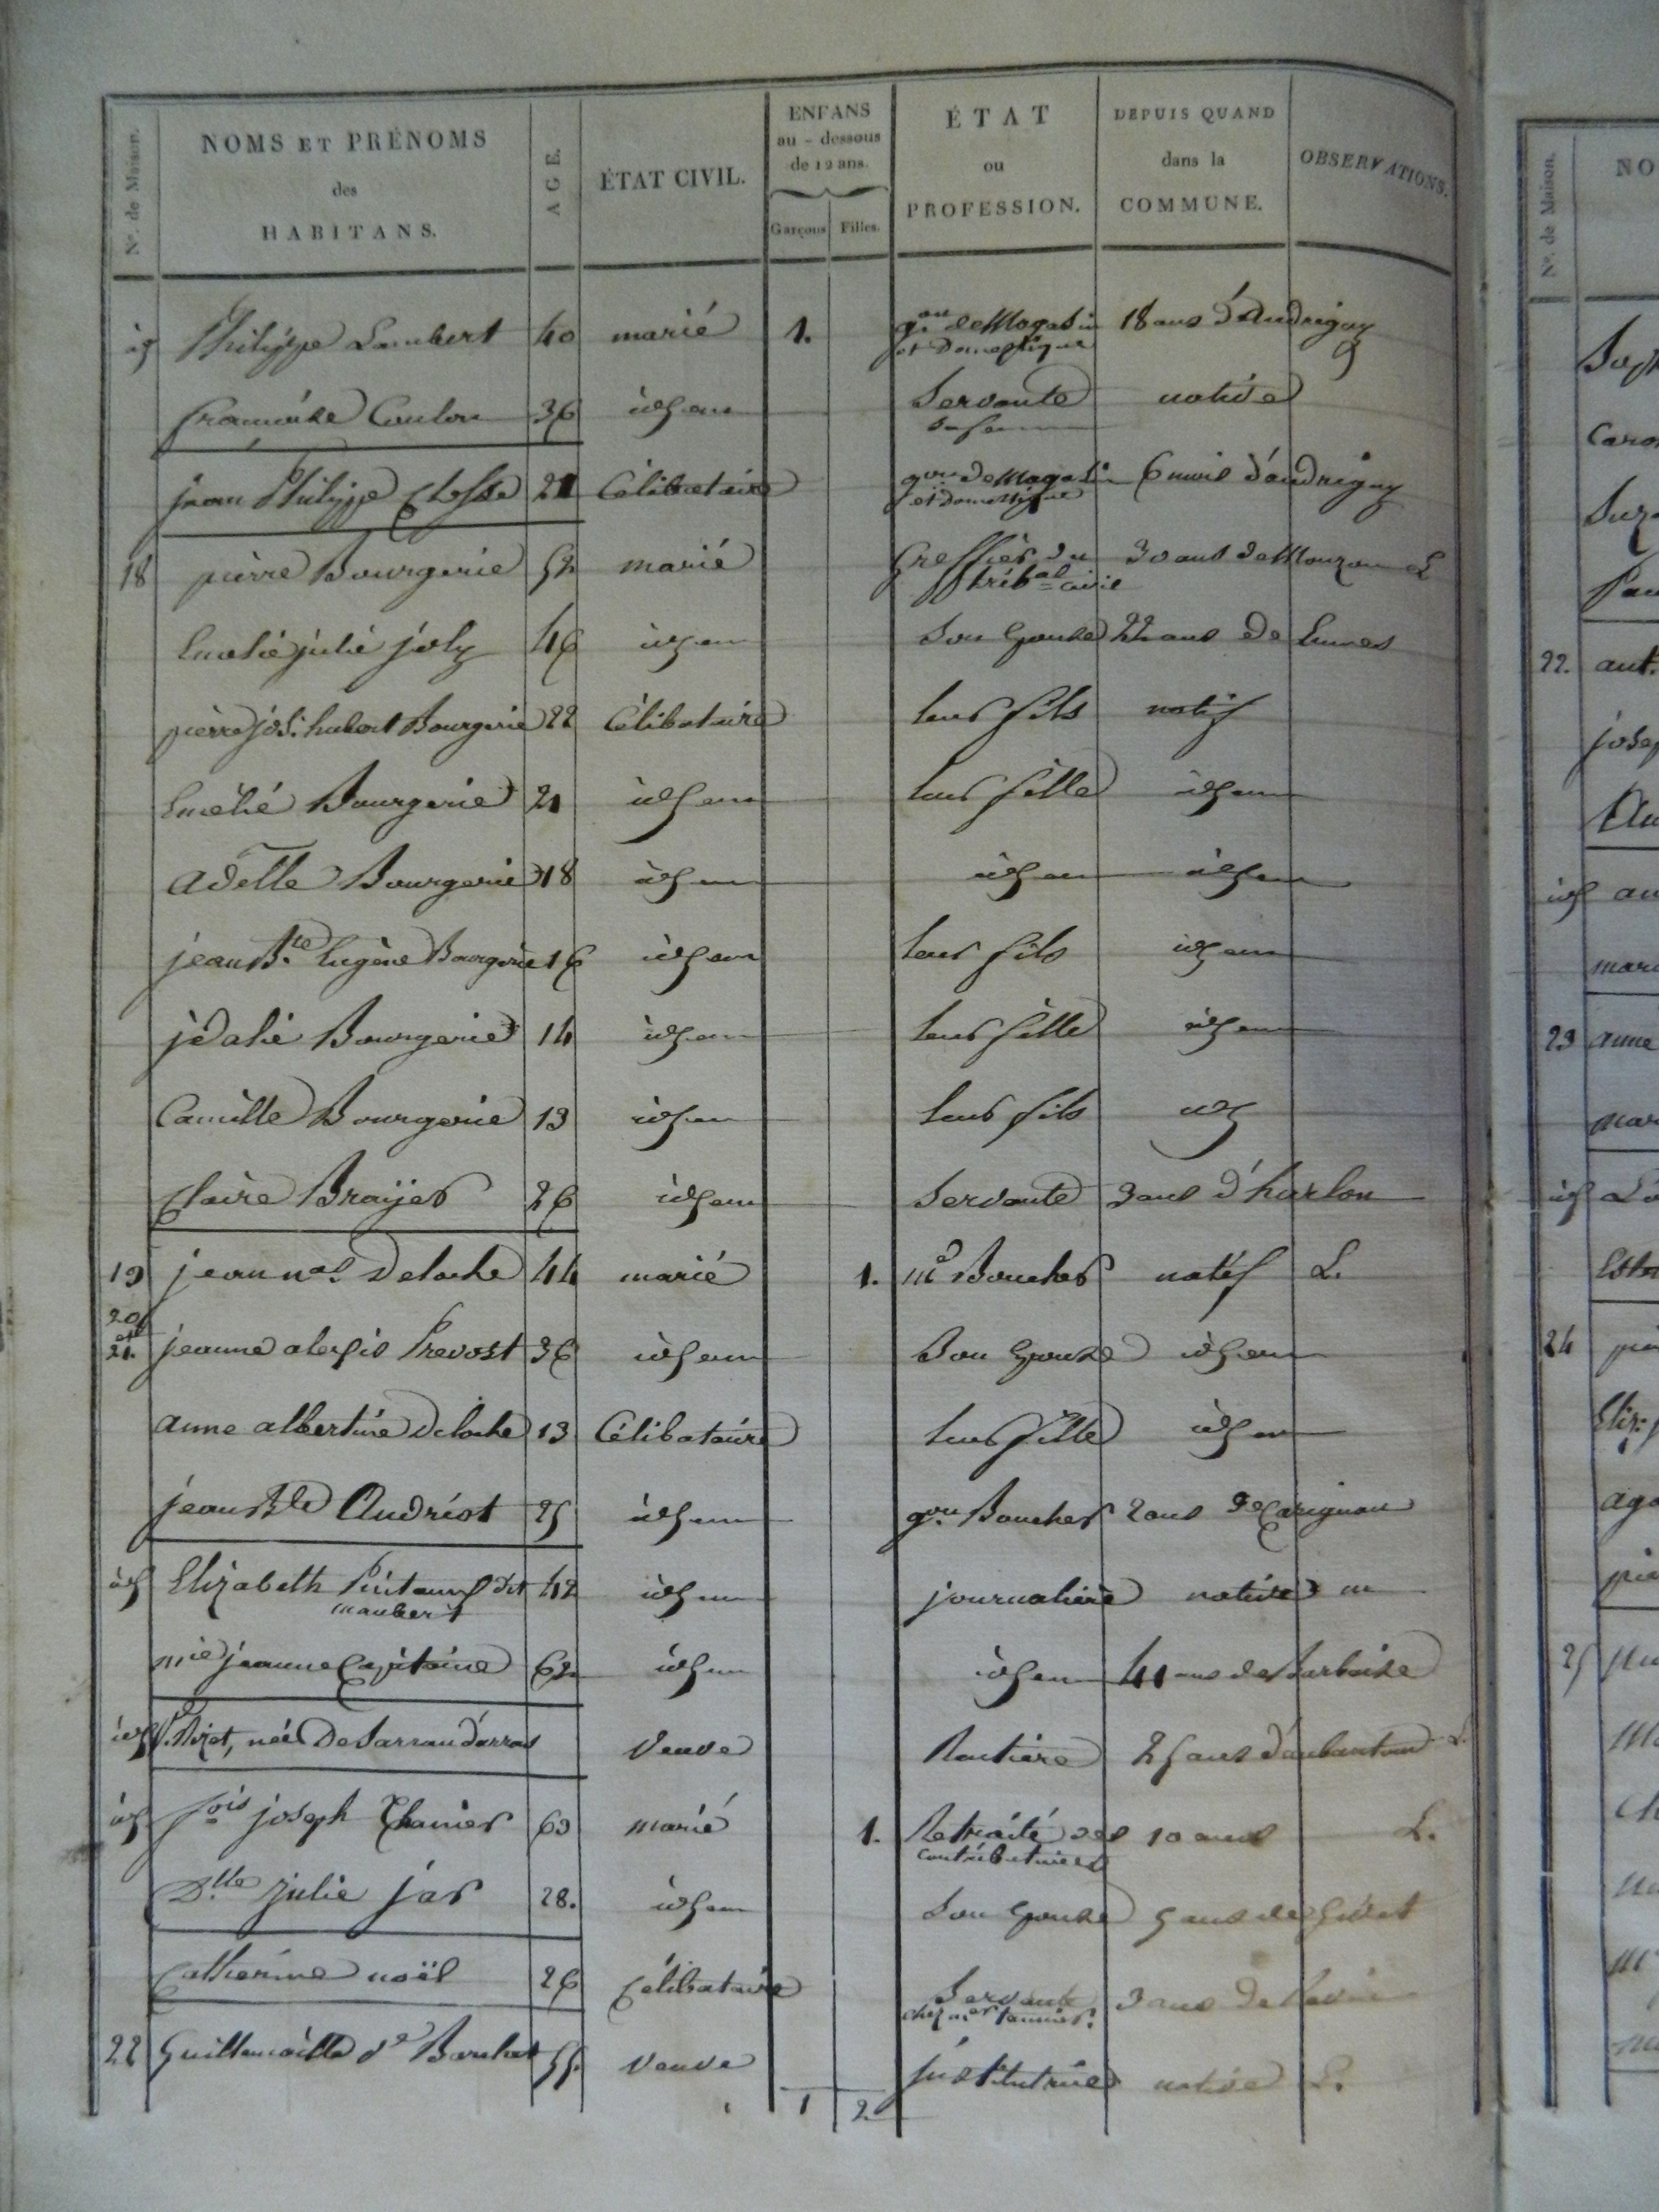 N°. de Maison. NOMS ET PRÉNOMS des HABITANS. AGE. ÉTAT CIVIL. ENFANS au-dessous de 12 ans. Garçons Filles. ÉTAT ou PROFESSION. DEPUIS QUAND dans la COMMUNE. OBSERVATIONS.
id Philippe Lambert 40 marié 1. gon de Magasin et Domestique 18 ans d'Audrigny
françoise Coulon 36 idem Servante native
jean Philippe Closse 21 Célibataire gon de Magasin et domestique 6 mois d'audrigny
18 pierre Bourgerie 52 marié Greffier du tribal civil 30 ans de Mouzon L
Emelie julie joly 46 idem Son Epouse 22 ans de
pierre jos. hubert Bourgerie 22 Célibataire leur fils natif
Emélie Bourgerie 21 idem leur fille idem
adelle Bourgerie 18 idem idem idem
jean Bte Eugène Bourgerie 16 idem leur fils idem
jdalie Bourgerie 14 idem leur fille idem
Camille Bourgerie 13 idem leur fils id
Claire Braijer 26 idem Servante 3 ans d'harlon
19 jean nas Deloche 44 marié 1. md Boucher natif L.
20 et 21. jeanne alexis Prevost 36 idem Son Epouse idem
anne albertine Deloche 13 Célibataire leur fille idem
jean Bte Audriot 25 idem gon Boucher 2 ans de Carignan
id Elizabeth dit maubert 42 idem journaliere native m
mie jeanne Capitaine 62 idem idem 41 ans de Barbaise
id Ve. née Veuve Rentiere 25 ans d'aubanton L.
id fois joseph 63 marié 1. Retraité des contributions 10 ans L.
Dlle julie jar 28. idem Son Epouse 5 ans de Givet
Catherine noël 26 Célibataire Servante chez mr 3 ans de
22 Ve 55. Veuve institutrice native L.
1 2.
N°. de Maison. NO
22. ant.
id
mari
23 anne
mar
id
24
25